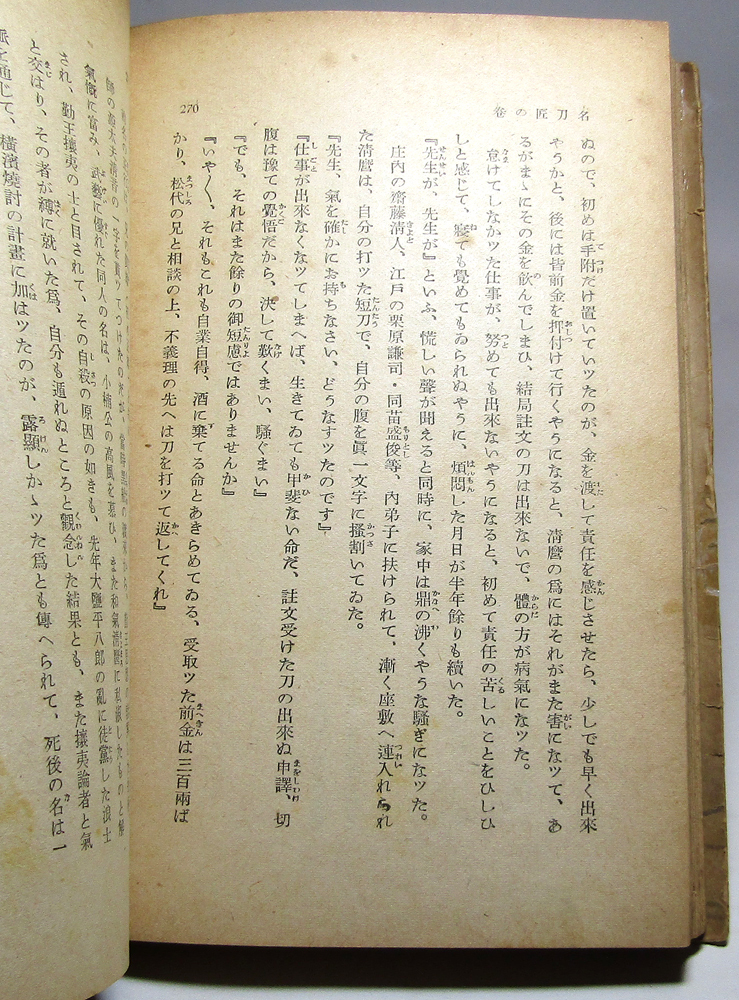 名刀匠の卷
270
ぬので、初めは手附だけ置いていツたのが、金を渡して責任を感じさせたら、少しでも早く出來
やうかと、後には皆前金を押付けて行くやうになると、清麿の爲にはそれがまた害になツて、あ
るがまゝにその金を飮んでしまひ、結局註文の刀は出來ないで、體の方が病氣になツた。
怠けてしなかツた仕事が、努めても出來ないやうになると、初めて責任の苦しいことをひしひ
しと感じて、寢ても覺めてもゐられぬやうに、煩悶した月日が半年餘りも續いた。
『先生が、先生が』といふ、慌しい聲が聞えると同時に、家中は鼎の沸くやうな騷ぎになツた。
庄內の齋藤淸人、江戸の栗原謙司・同苗盛俊等、內弟子に扶けられて、漸く座敷へ連入れられ
た淸麿は、自分の打ツた短刀で、自分の腹を眞一文字に搔割いてゐた。
『先生、氣を確かにお持ちなさい、どうなすツたのです』
『仕事が出來なくなツてしまへば、生きてゐても甲斐ない命だ、註文受けた刀の出來ぬ申譯、切
腹は豫ての覺悟だから、決して歎くまい、騷ぐまい』
『でも、それはまた餘りの御短慮ではありませんか』
『いや〱、それもこれも自業自得、酒に棄てる命とあきらめてゐる、受取ツた前金は三百兩ば
かり、松代の兄と相談の上、不義理の先へは刀を打ツて返してくれ』
氣慨に富み、武藝に優れた同人の名は、小楠公の高風を慕ひ、また和氣淸麿に私淑したものと解
され、勤王攘夷の士と目されて、その自殺の原因の如きも、先年大鹽平八郎の亂に徒黨した浪士
と交はり、その者が縛に就いた爲、自分も遁れぬところと觀念した結果とも、また攘夷論者と氣
脈を通じて、橫濱燒討の計畫に加はツたのが、露顯しかゝツた爲とも傳へられて、死後の名は一